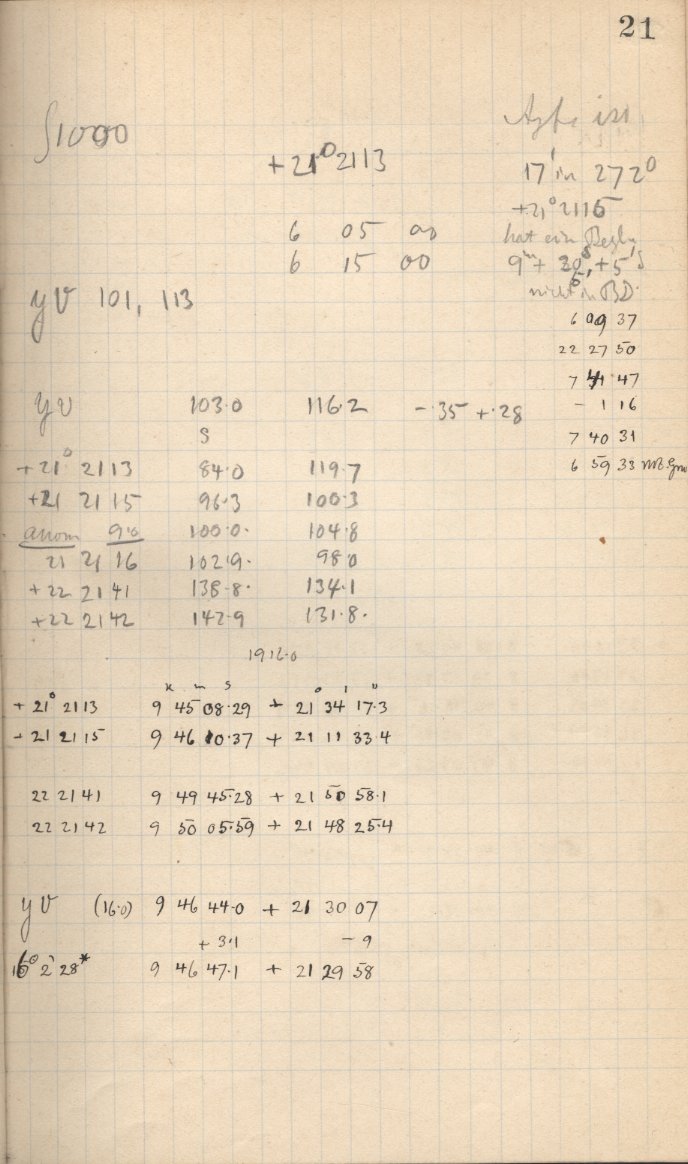 21
∫1000
+21° 2113
17' in 272°
+21° 2115
6 05 00
hat ein
6 15 00
9ᵐ+ 30ˢ, +5'
nicht in BD.
yv 101, 113
6 09 37
22 27 50
7 41 47
yv 103.0 116.2 -.35 +.28
- 1 16
S
7 40 31
+21° 2113 84.0 119.7
6 59 33
+21 2115 96.3 100.3
anom 9.0 100.0. 104.8
21 2116 102.9. 98.0
+22 2141 138.8. 134.1
+22 2142 142.9 131.8.
1916.0
h m s ° ' "
+21° 2113 9 45 08.29 + 21 34 17.3
+21 2115 9 46 10.37 + 21 11 33.4
22 2141 9 49 45.28 + 21 50 58.1
22 2142 9 50 05.59 + 21 48 25.4
yv (16.0) 9 46 44.0 + 21 30 07
+ 3.1 - 9
16° 2' 28* 9 46 47.1 + 21 29 58